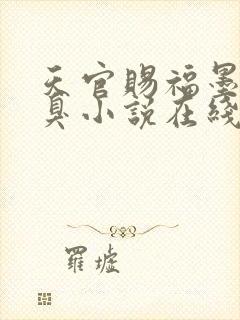 天官賜福墨
臭小説在綫
羅墟